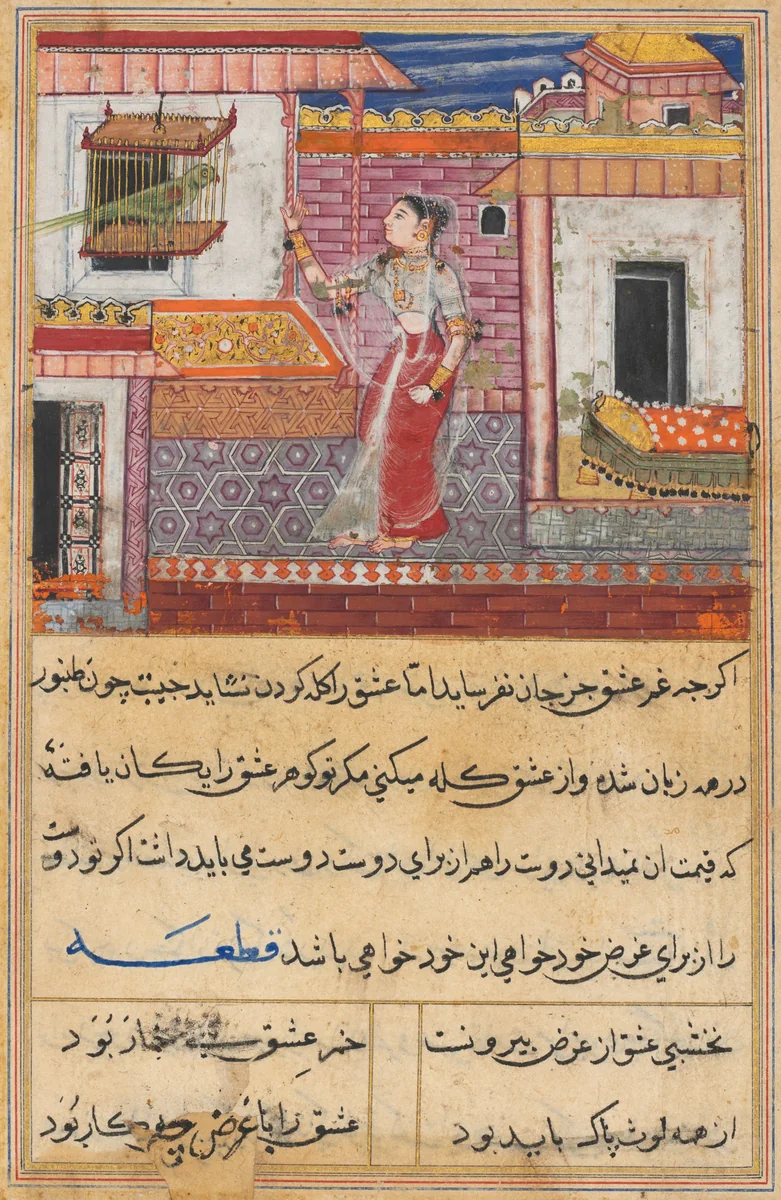 اکرجه غم عشق جز جان نفرساید اما عشق را کله کردن نشاید جیست چون طنبور
درمه زبان شده و از عشق کله میکنی مکر تو کوهر عشق رایکان یافتهٔ
که قیمت ان نمیدانی دوست را هم از برای دوست دوست می باید داشت اکر تو دوست
را از برای غرض خود خواهی این خود خواهی باشد قطعه
نخشبی عشق از غرض بیرونست
خمر عشق بی خمار بود
از همه لوث پاک باید بود
عشق را با غرض چه کار بود